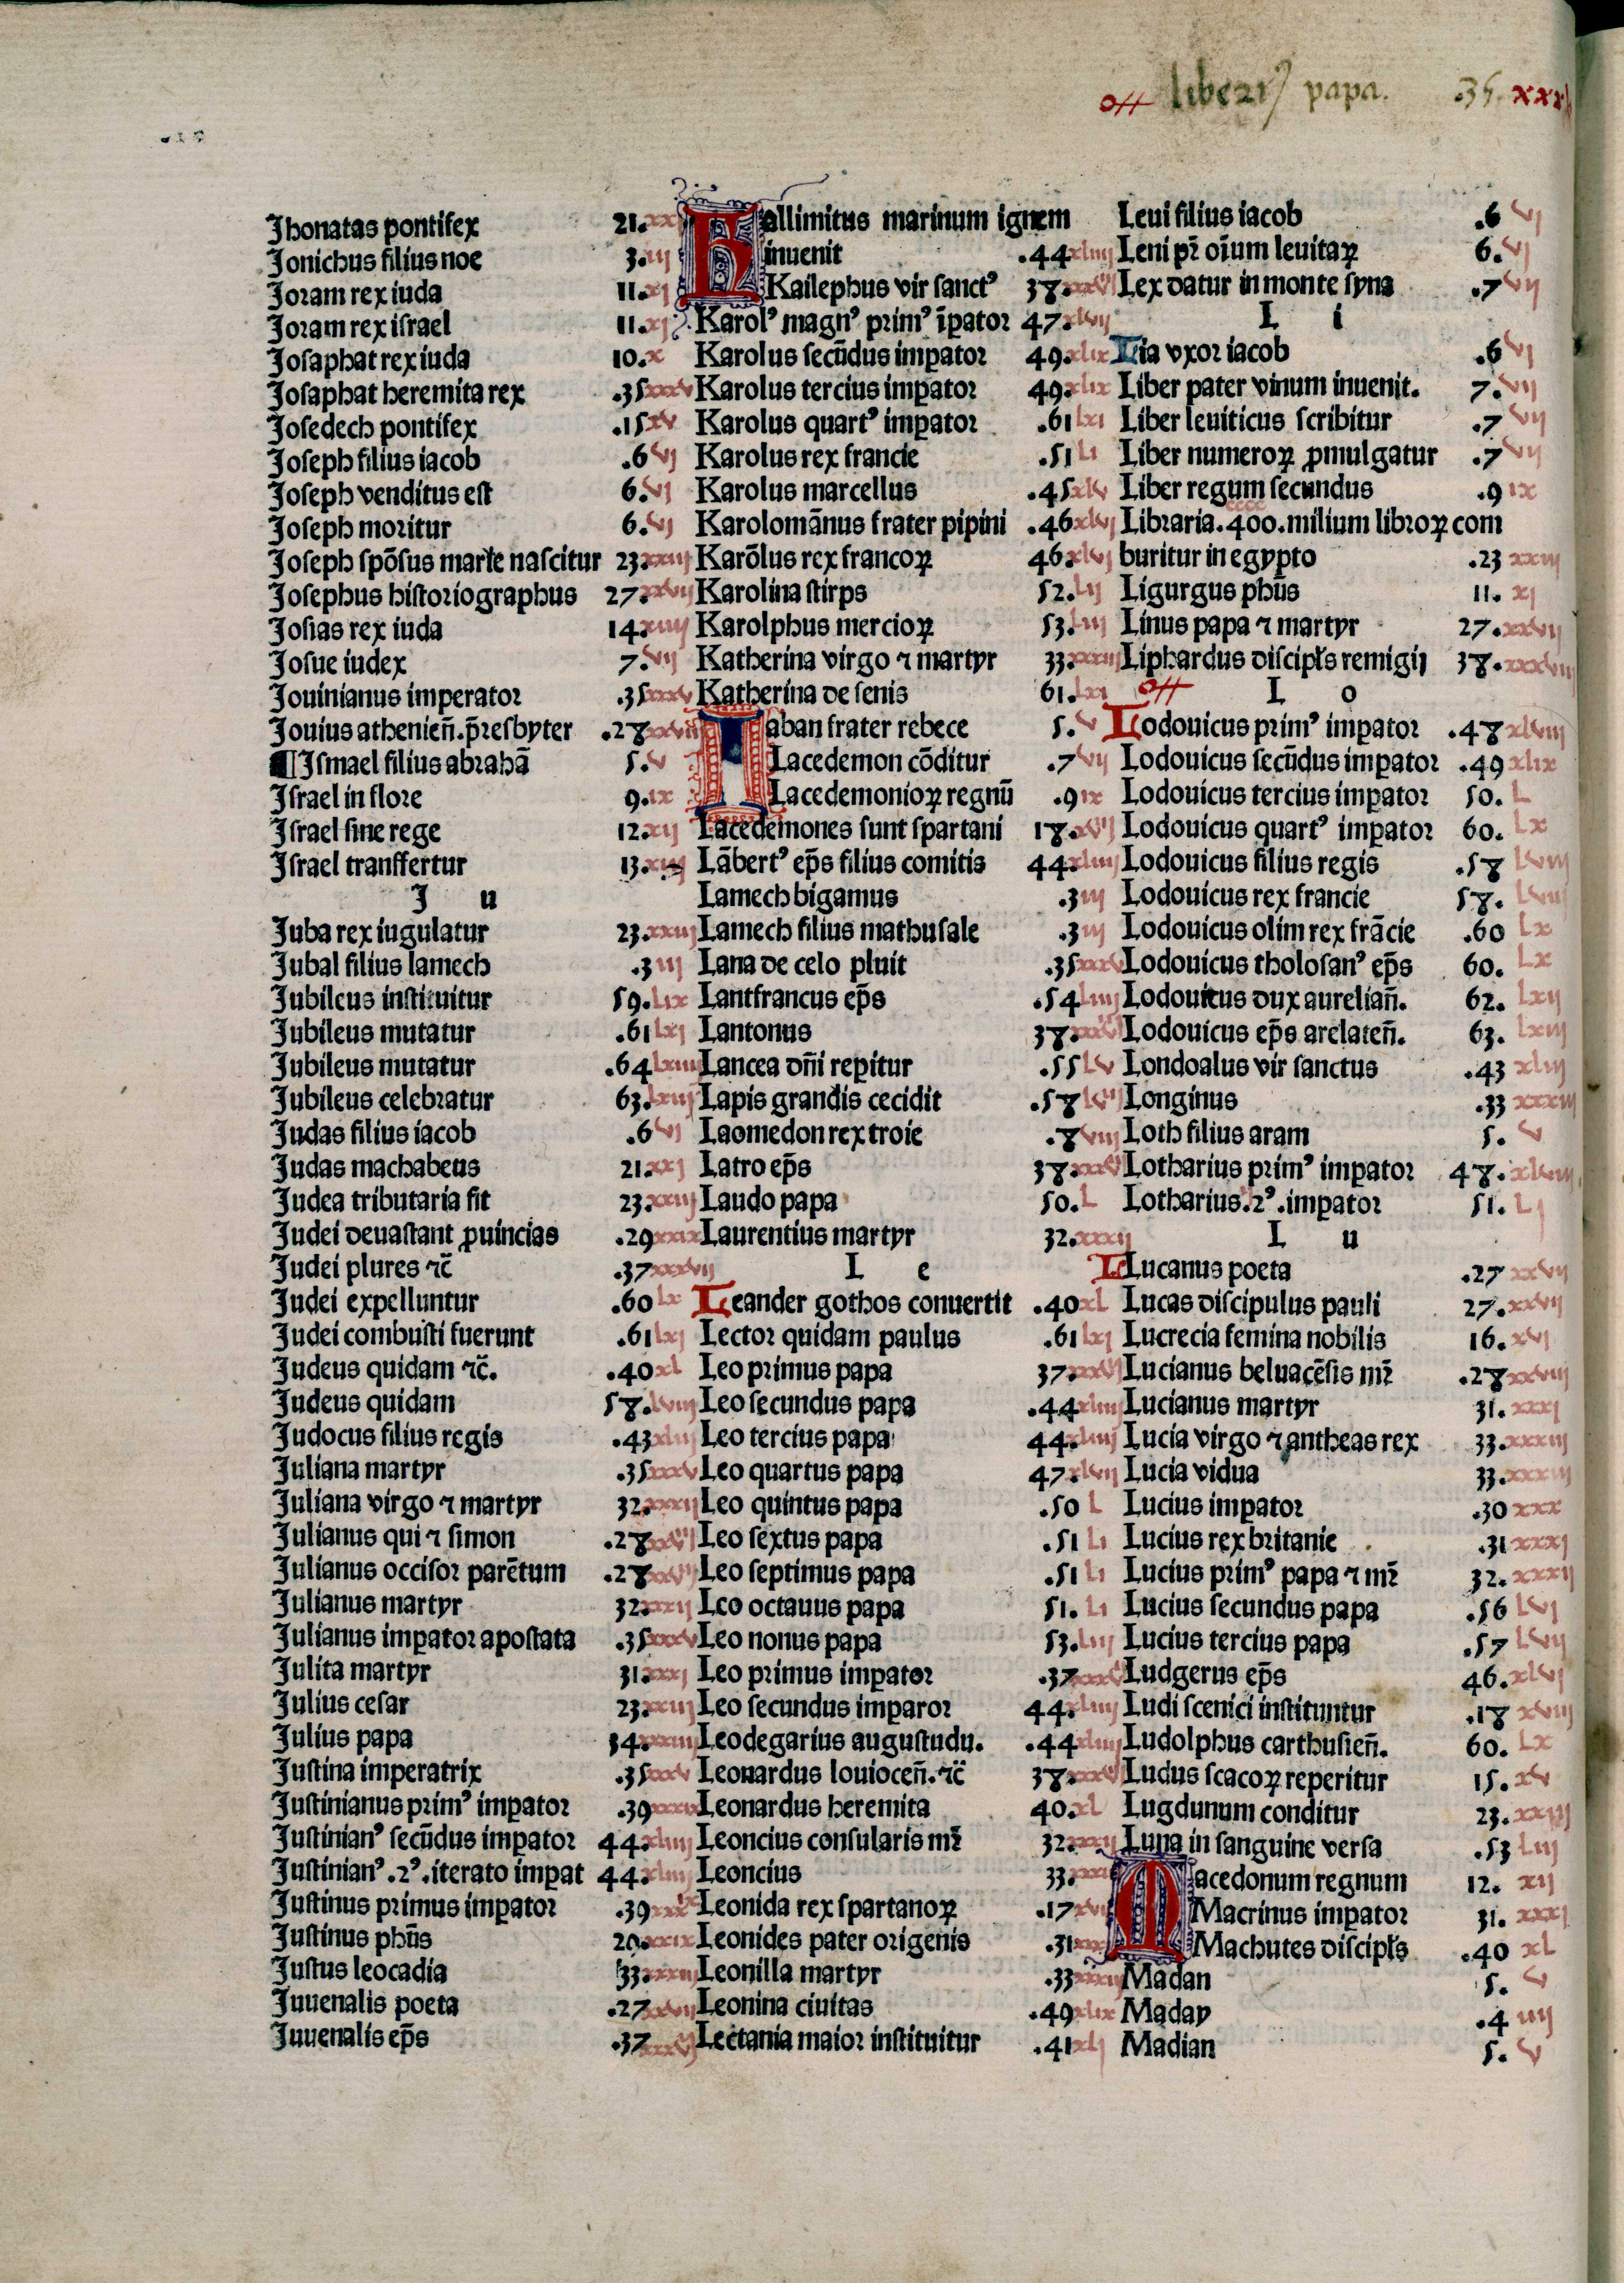 liberiꝰ papa. .35. xxxv
Jhonatas pontifex 21. xxj
Jonichus filius noe 3. iij
Joram rex iuda 11. xj
Joram rex israel 11. xj
Josaphat rex iuda 10. x
Josaphat heremita rex .35 xxxv
Josedech pontifex .15 xv
Joseph filius iacob .6 vj
Joseph venditus est 6. vj
Joseph moritur 6. vj
Joseph spōsus marie nascitur 23. xxiij
Josephus historiographus 27. xxvij
Josias rex iuda 14. xiiij
Josue iudex 7. vij
Jouinianus imperator .35 xxxv
Jouius athenien̄. p̄resbyter .28 xxviij
¶Jsmael filius abrahā 5. v
Jsrael in flore 9. ix
Jsrael sine rege 12. xij
Jsrael transfertur 13. xiij
J u
Juba rex iugulatur 23. xxiij
Jubal filius lamech .3 iij
Jubileus instituitur 59. lix
Jubileus mutatur .61 lxj
Jubileus mutatur .64 lxiiij
Jubileus celebratur 63. lxiij
Judas filius iacob .6 vj
Judas machabeus 21. xxj
Judea tributaria fit 23. xxiij
Judei deuastant ꝓuincias .29 xxix
Judei plures ⁊c̄ .37 xxxvij
Judei expelluntur .60 lx
Judei combusti fuerunt .61 lxj
Judeus quidam ⁊c̄. .40 xl
Judeus quidam 58. lviij
Judocus filius regis .43 xliij
Juliana martyr .35 xxxv
Juliana virgo ⁊ martyr 32. xxxij
Julianus qui ⁊ simon .28 xxviij
Julianus occisor parētum .28 xxviij
Julianus martyr 32. xxxij
Julianus imperator apostata .35 xxxv
Julita martyr 31. xxxj
Julius cesar 23. xxiij
Julius papa 34. xxxiiij
Justina imperatrix .35 xxxv
Justinianus primꝰ imꝑator .39 xxxix
Justinianꝰ secūdus imꝑator 44. xliiij
Justinianꝰ .2ꝰ. iterato imꝑat 44. xliiij
Justinus primus imꝑator .39 xxxix
Justinus phūs 29. xxix
Justus leocadia 33. xxxiij
Juuenalis poeta .27 xxvij
Juuenalis ep̄s .37 xxxvij
Kallimitus marinum ignem
inuenit .44 xliiij
Kailephus vir sanctꝰ 38. xxxviij
Karolꝰ magnꝰ primꝰ īꝑator 47. xlvij
Karolus secūdus imꝑator 49. xlix
Karolus tercius imꝑator 49. xlix
Karolus quartꝰ imꝑator .61 lxj
Karolus rex francie .51 lj
Karolus marcellus .45 xlv
Karolomānus frater pipini .46 xlvj
Karōlus rex francoꝝ 46. xlvj
Karolina stirps 52. lij
Karolphus mercioꝝ 53. liij
Katherina virgo ⁊ martyr 33. xxxiij
Katherina de senis 61. lxj
Laban frater rebece 5. v
Lacedemon cōditur .7 vij
Lacedemonioꝝ regnū .9 ix
Lacedemones sunt spartani 18. xviij
Lābertꝰ ep̄s filius comitis 44. xliiij
Lamech bigamus .3 iij
Lamech filius mathusale .3 iij
Lana de celo pluit .35 xxxv
Lantfrancus ep̄s .54 liiij
Lantonus 38. xxxviij
Lancea dn̄i reꝑitur .55 lv
Lapis grandis cecidit .58 lviij
Laomedon rex troie .8 viij
Latro ep̄s 38. xxxviij
Laudo papa 50. l
Laurentius martyr 32. xxxij
L e
Leander gothos conuertit .40 xl
Lector quidam paulus .61 lxj
Leo primus papa 37. xxxvij
Leo secundus papa .44 xliiij
Leo tercius papa 44. xliiij
Leo quartus papa 47. xlvij
Leo quintus papa .50 l
Leo sextus papa .51 lj
Leo septimus papa .51 lj
Leo octauus papa 51. lj
Leo nonus papa 53. liij
Leo primus imperator .37 xxxvij
Leo secundus imꝑaror 44. xliiij
Leodegarius augustudu. .44 xliiij
Leonardus louiocen̄. ⁊c̄ 38. xxxviij
Leonardus heremita 40. xl
Leoncius consularis mr̄ 32. xxxij
Leoncius 33. xxxiij
Leonida rex spartanoꝝ .17 xvij
Leonides pater origenis .31 xxxj
Leonilla martyr .33 xxxiij
Leonina ciuitas .49 xlix
Lectania maior instituitur .41 xlj
Leui filius iacob .6 vj
Leni pr̄ oīum leuitaꝝ 6. vj
Lex datur in monte syna .7 vij
L i
Lia vxor iacob .6 vj
Liber pater vinum inuenit. 7. vij
Liber leuiticus scribitur .7 vij
Liber numeroꝝ ꝓmulgatur .7 vij
Liber regum secundus .9 ix
cccc
Libraria .400. milium libroꝝ com
buritur in egypto .23 xxiij
Ligurgus phūs 11. xj
Linus papa ⁊ martyr 27. xxvij
Liphardus discipɫs remigij 38. xxxviij
L o
Lodouicus primꝰ imꝑator .48 xlviij
Lodouicus secūdus imꝑator .49 xlix
Lodouicus tercius imꝑator 50. L
Lodouicus quartꝰ imꝑator 60. lx
Lodouicus filius regis .58 lviij
Lodouicus rex francie 58. lviij
Lodouicus olim rex frācie .60 lx
Lodouicus tholosanꝰ ep̄s 60. lx
Lodouicus dux aurelian̄. 62. lxij
Lodouicus ep̄s arelaten̄. 63. lxiij
Londoalus vir sanctus .43 xliij
Longinus .33 xxxiij
Loth filius aram 5. v
Lotharius primꝰ imꝑator 48. xlviij
Lotharius .2ꝰ. imꝑator 51. Lj
L u
Lucanus poeta .27 xxvij
Lucas discipulus pauli 27. xxvij
Lucrecia femina nobilis 16. xvj
Lucianus beluacēsis mr̄ .28 xxviij
Lucianus martyr 31. xxxj
Lucia virgo ⁊ antheas rex 33. xxxiij
Lucia vidua 33. xxxiij
Lucius imꝑator .30 xxx
Lucius rex britanie .31 xxxj
Lucius primꝰ papa ⁊ mr̄ 32. xxxij
Lucius secundus papa .56 lvj
Lucius tercius papa .57 lvij
Ludgerus ep̄s 46. xlvj
Ludi scenici instituntur .18 xviij
Ludolphus carthusien̄. 60. lx
Ludus scacoꝝ reperitur 15. xv
Lugdunum conditur 23. xxiij
Luna in sanguine versa .53 liij
Macedonum regnum 12. xij
Macrinus imꝑator 31. xxxj
Machutes discipɫs .40 xl
Madan 5. v
Maday .4 iiij
Madian 5. v